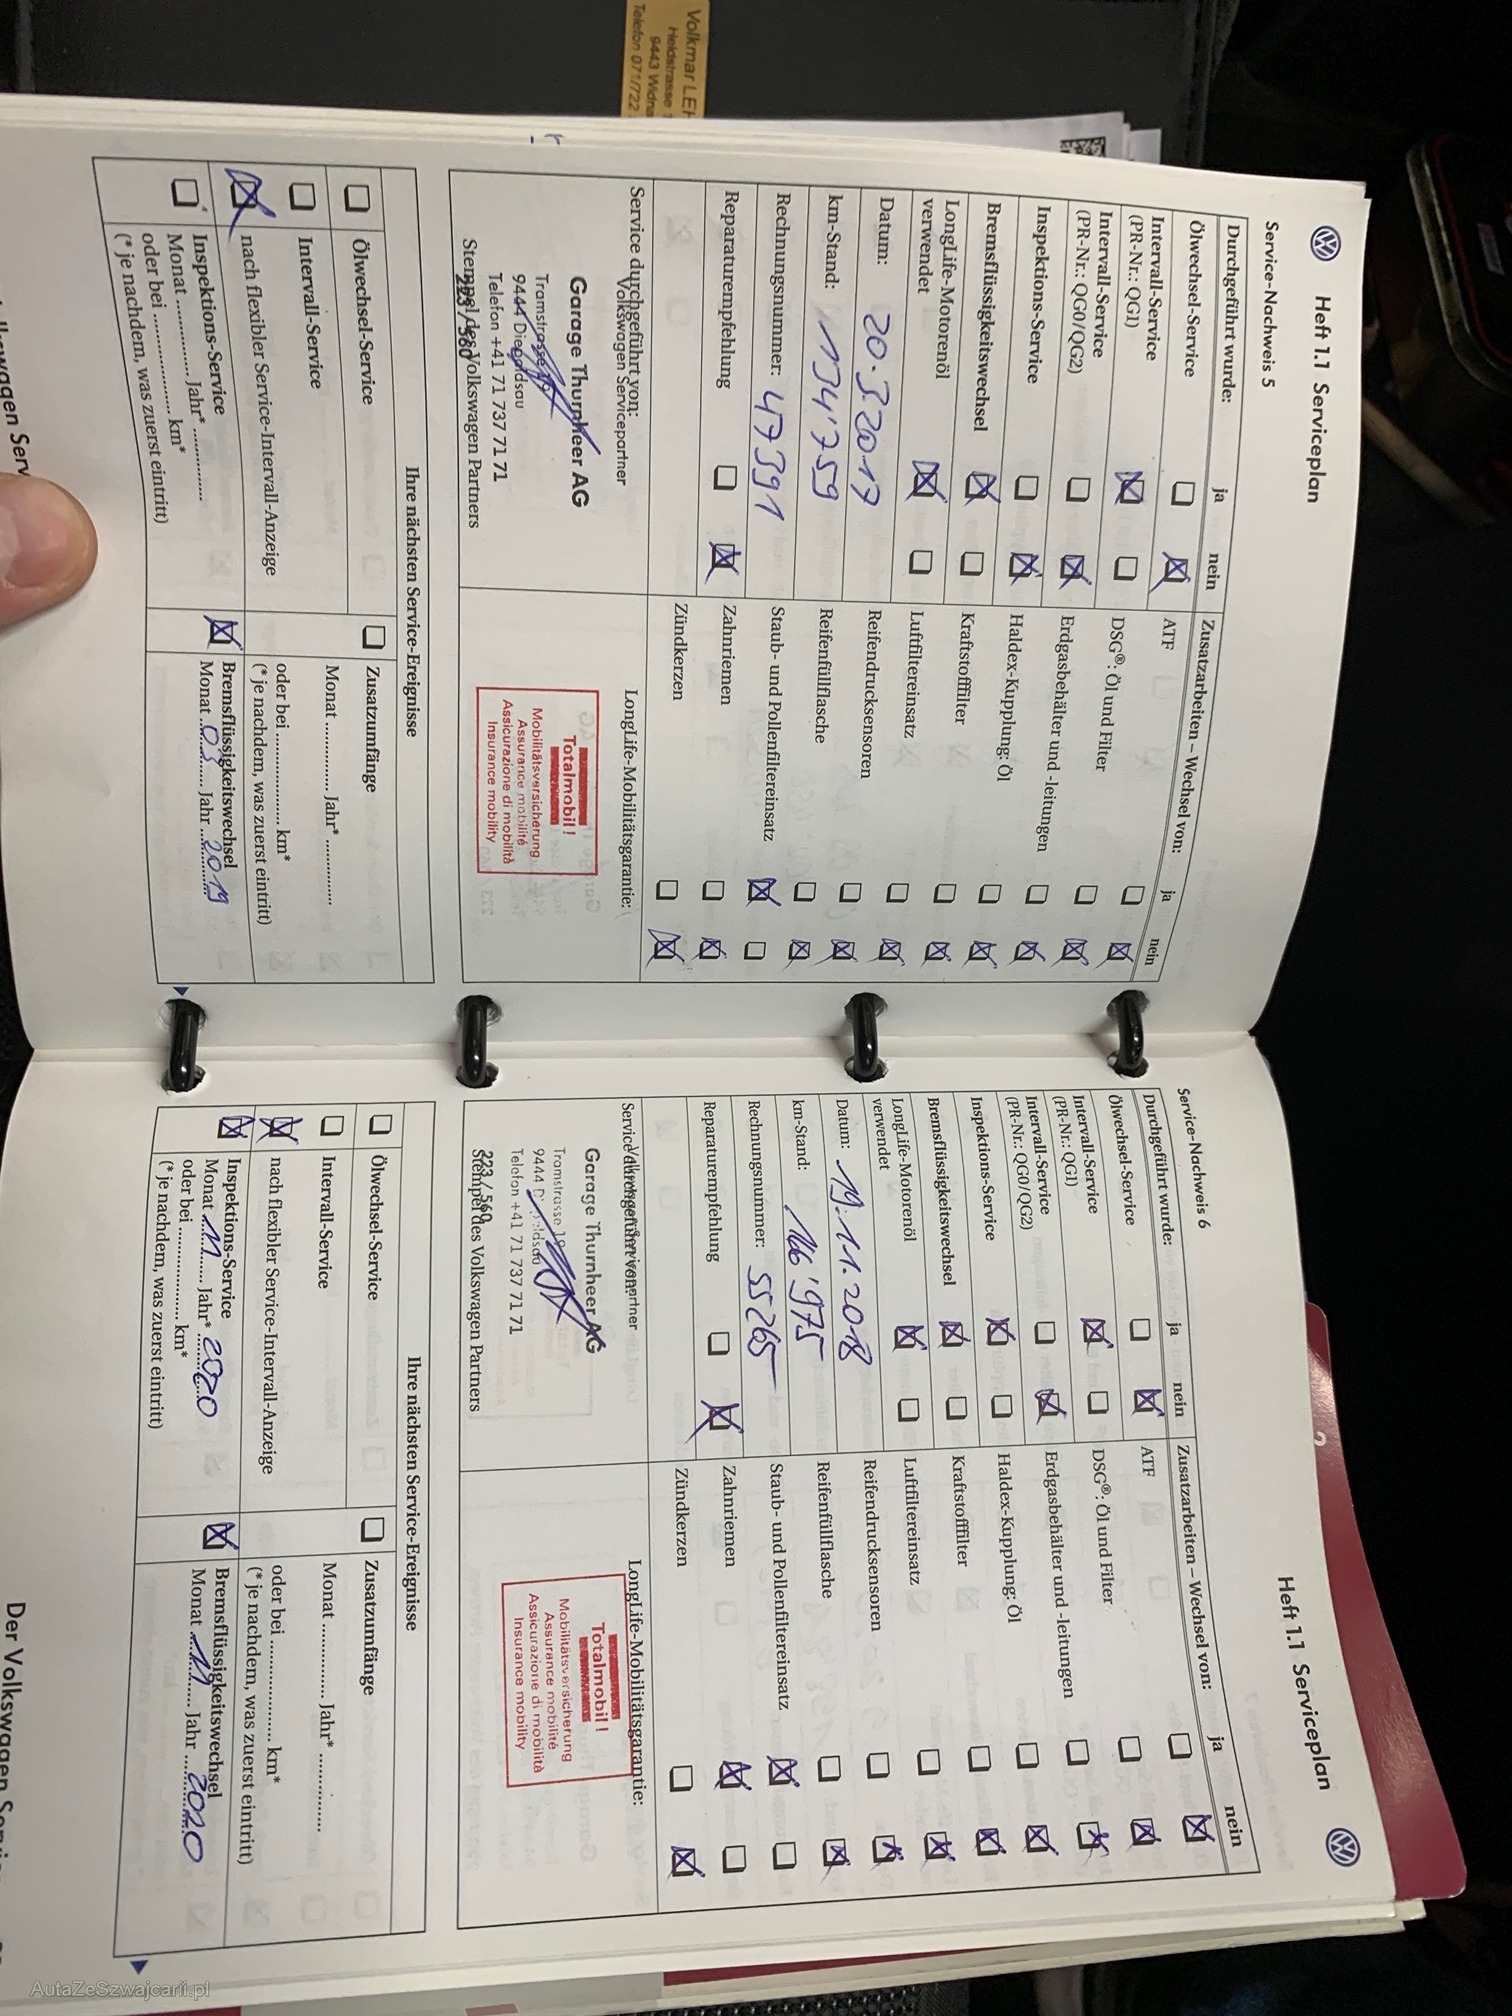 Volkmar
Heldstrasse
9443 Widna
Telefon 071/722
Heft 1.1 Serviceplan
Service-Nachweis 5
Durchgeführt wurde: ja nein
Ölwechsel-Service
Intervall-Service
(PR-Nr.: QG1)
Intervall-Service
(PR-Nr.: QG0/QG2)
Inspektions-Service
Bremsflüssigkeitswechsel
LongLife-Motorenöl
verwendet
Datum: 20.3.2017
km-Stand: 134'759
Rechnungsnummer: 47391
Reparaturempfehlung
Zusatzarbeiten – Wechsel von: ja nein
ATF
DSG®: Öl und Filter
Erdgasbehälter und -leitungen
Haldex-Kupplung: Öl
Kraftstofffilter
Luftfiltereinsatz
Reifendrucksensoren
Reifenfüllflasche
Staub- und Pollenfiltereinsatz
Zahnriemen
Zündkerzen
Service durchgeführt von:
Volkswagen Servicepartner
Garage Thurnheer AG
Tramstrasse
9444 Diepoldsau
Telefon +41 71 737 71 71
223 / 560
Stempel des Volkswagen Partners
LongLife-Mobilitätsgarantie:
Totalmobil!
Mobilitätsversicherung
Assurance mobilité
Assicurazione di mobilità
Insurance mobility
Ihre nächsten Service-Ereignisse
Ölwechsel-Service
Intervall-Service
nach flexibler Service-Intervall-Anzeige
Inspektions-Service
Monat ............ Jahr* ............
oder bei .................... km*
(* je nachdem, was zuerst eintritt)
Zusatzumfänge
Monat ............ Jahr* ............
oder bei .................... km*
(* je nachdem, was zuerst eintritt)
Bremsflüssigkeitswechsel
Monat 03 Jahr 2019
Heft 1.1 Serviceplan
Service-Nachweis 6
Durchgeführt wurde: ja nein
Ölwechsel-Service
Intervall-Service
(PR-Nr.: QG1)
Intervall-Service
(PR-Nr.: QG0/QG2)
Inspektions-Service
Bremsflüssigkeitswechsel
LongLife-Motorenöl
verwendet
Datum: 19.11.2018
km-Stand: 166'975
Rechnungsnummer: 55265
Reparaturempfehlung
Zusatzarbeiten – Wechsel von: ja nein
ATF
DSG®: Öl und Filter
Erdgasbehälter und -leitungen
Haldex-Kupplung: Öl
Kraftstofffilter
Luftfiltereinsatz
Reifendrucksensoren
Reifenfüllflasche
Staub- und Pollenfiltereinsatz
Zahnriemen
Zündkerzen
Service durchgeführt von:
Volkswagen Servicepartner
Garage Thurnheer AG
Tramstrasse
9444
Telefon +41 71 737 71 71
223 / 560
Stempel des Volkswagen Partners
LongLife-Mobilitätsgarantie:
Totalmobil!
Mobilitätsversicherung
Assurance mobilité
Assicurazione di mobilità
Insurance mobility
Ihre nächsten Service-Ereignisse
Ölwechsel-Service
Intervall-Service
nach flexibler Service-Intervall-Anzeige
Inspektions-Service
Monat 11 Jahr* 2020
oder bei .................... km*
(* je nachdem, was zuerst eintritt)
Zusatzumfänge
Monat ............ Jahr* ............
oder bei .................... km*
(* je nachdem, was zuerst eintritt)
Bremsflüssigkeitswechsel
Monat 11 Jahr 2020
Der Volkswagen
AutaZeSzwajcarii.pl